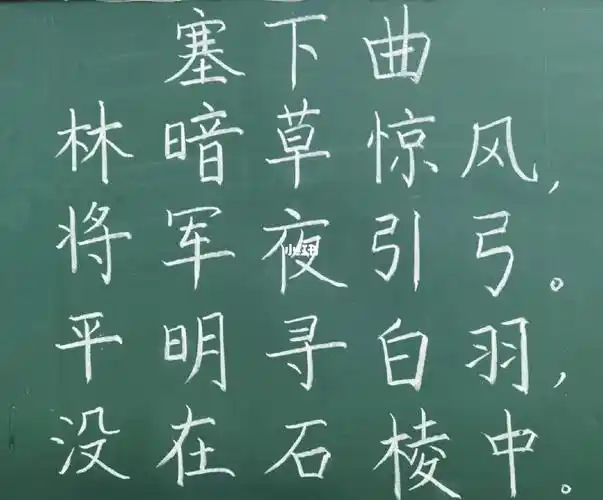 塞下曲
林暗草惊风,
将军夜引弓。
平明寻白羽,
没在石棱中。
小红书